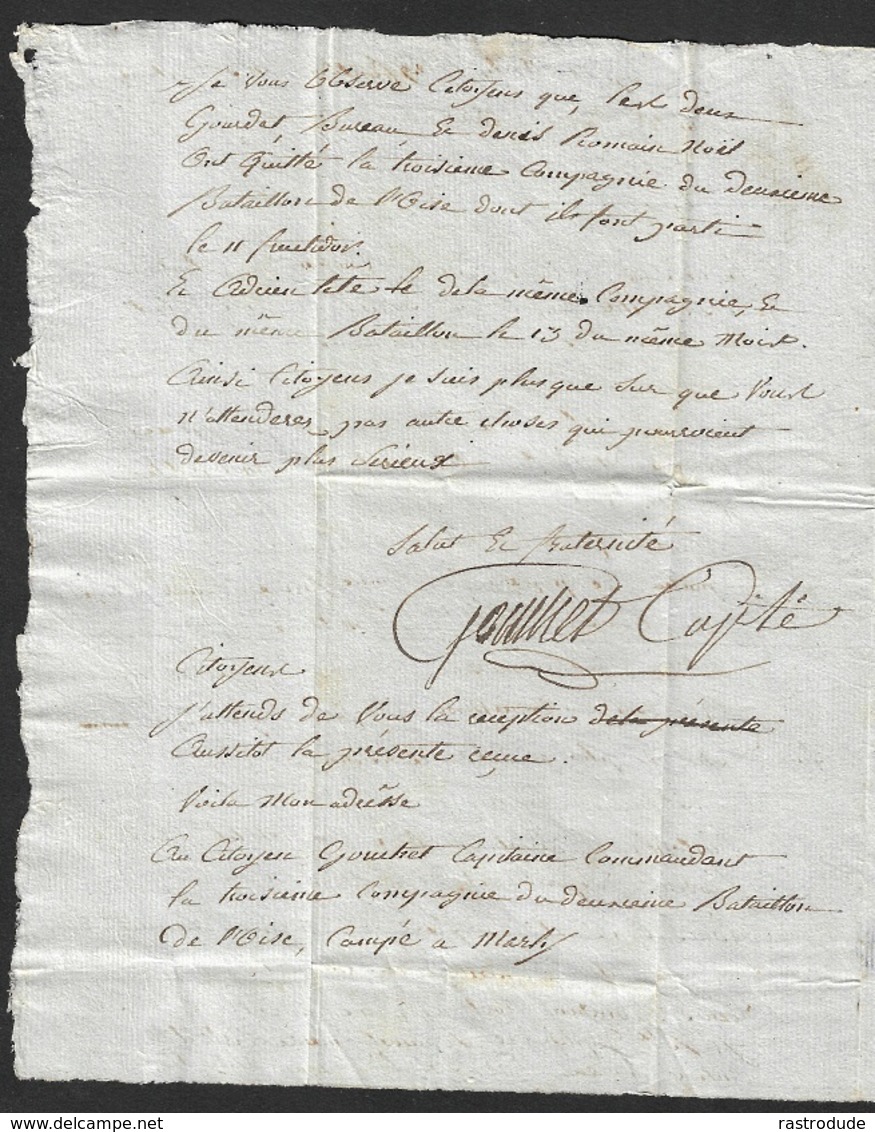 Je vous observe Citoyens que, les deux
Gourdet, Bureau et denis Romain Noël
Ont quitté la troisieme Compagnie du deuxieme
Bataillon de l'Oise dont ils font parti
le 11 fructidor.
Et de la même Compagnie, et
du même Bataillon le 13 du même Mois.
Ainsi Citoyens je suis plus que sur que Vous
n'attenderes pas autre choses qui pourroient
devenir plus Serieux
Salut et fraternité
Gouchet Capit.e
Citoyens
j'attends de Vous la reception de la présente
Aussitot la présente reçue.
Voila Mon adrèsse
Au Citoyen Gouchet Capitaine Commandant
la troisieme Compagnie du deuxieme Bataillon
De l'Oise, Campé a
www.delcampe.net
rastrodude